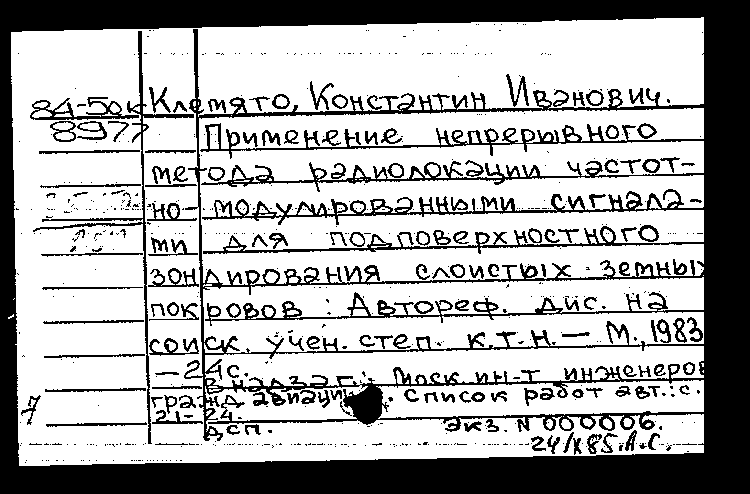 84-5ок Клемято, Константин Иванович.
8977 Применение непрерывного
метода радиолокации частот-
но-модулированными сигнала-
ми для подповерхностного
зондирования слоистых земных
покровов : Автореф. дис. на
соиск. учен. степ. к.т.н. — М., 1983
— 24с.
В надзаг.: Моск ин-т инженеров
гражд авиации. Список работ авт.: с.
21-24.
ДСП. Экз. N 000006.
24/IX85.А.С.
7